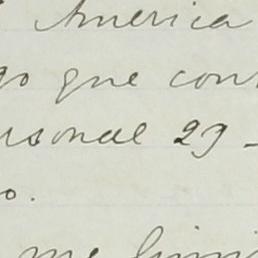 America
go que con
rsonal 29-
o.
me